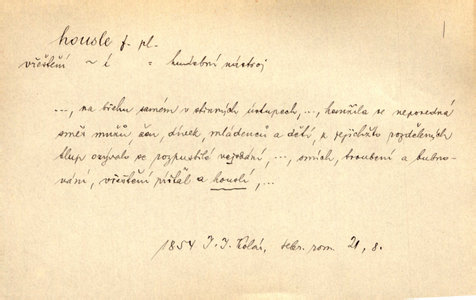 housle f. pl.
1
vřeštění ~ í = hudební nástroj
..., na břehu samém v stinných ústupech, ..., hemžila se neposedná
směs mužů, žen, dívek, mládenců a dětí, z jejichžto rozdělených
tlup ozývalo se rozpustilé , ..., smích, troubení a bubno-
vání, vřeštění píšťal a houslí, ...
1854 J. J. Kolár, sebr. rom. 21, 8.